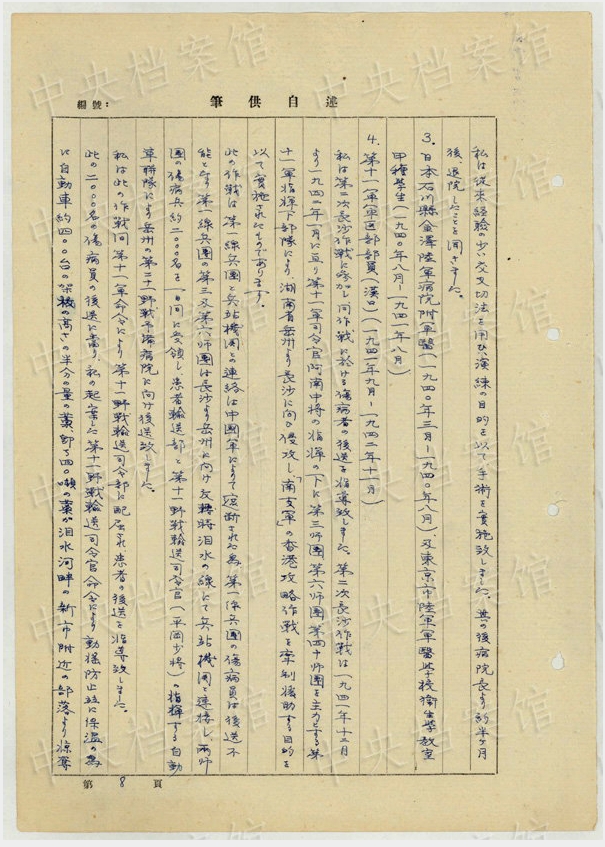 編號：
筆供自述
私は従来経験の少い交叉切法を用ひ、演練の目的を以て手術を実施致しました。其の後病院長より約半ヶ月
後、退院したことを聞きました。
3. 日本石川縣金澤陸軍病院附軍醫（一九四〇年三月－一九四〇年八月）、及東京市陸軍軍醫学校衛生学教室
甲種学生（一九四〇年八月－一九四一年八月）
4. 第十一軍軍医部部員（漢口）（一九四一年九月－一九四二年十一月）
私は第二次長沙作戦に参加し同作戦に於ける傷病者の後送を指導致しました。第二次長沙作戦は一九四一年十二月
より一九四二年一月に亘り第十一軍司令官阿南中将の指揮の下に第三師團第六師團第四十師團を主力とする第
十一軍指揮下部隊により、湖南省岳州より長沙に向ひ侵攻し「南支軍」の香港攻略作戦を牽制援助する目的を
以て実施されたものであります。
此の作戦は第一線兵團と兵站機関との連絡は中國軍によって遮断された為、第一線兵團の傷病員は後送不
能となり第一線兵團の第三及第六師團は長沙より岳州に向け反轉時汨水の線にて兵站機関と連接し、両師
團の傷病兵約二〇〇〇名を一日間に受領し、患者輸送部と第十一野戦輸送司令官（平岡少将）の指揮する自動
車聯隊により岳州の第二十一野戦予備病院に向け後送致しました。
私は此の作戦間第十一軍命令により第十一野戦輸送司令部に配屬され患者の後送を指導致しました。
此の二〇〇〇名の傷病員の後送に當り、私の起案した第十一野戦輸送司令官命令により動揺防止並に保温の為
に自動車約四〇〇台の架板の高さの半分の量の藁即ち四〇噸の藁が汨水河畔の新市附近の部落より掠奪
第 8 頁
中央档案馆